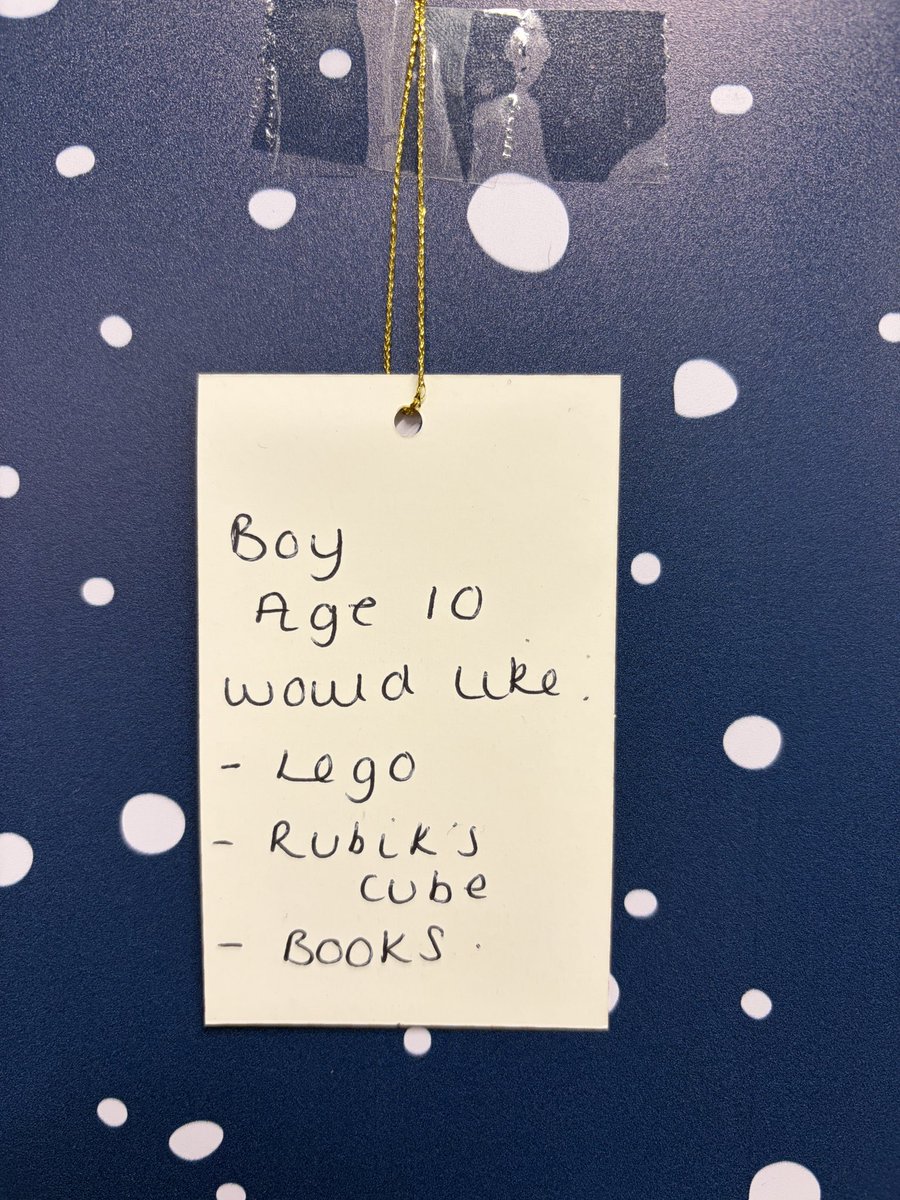 Boy
Age 10
would like.
- Lego
- Rubik's
cube
- BOOKS.